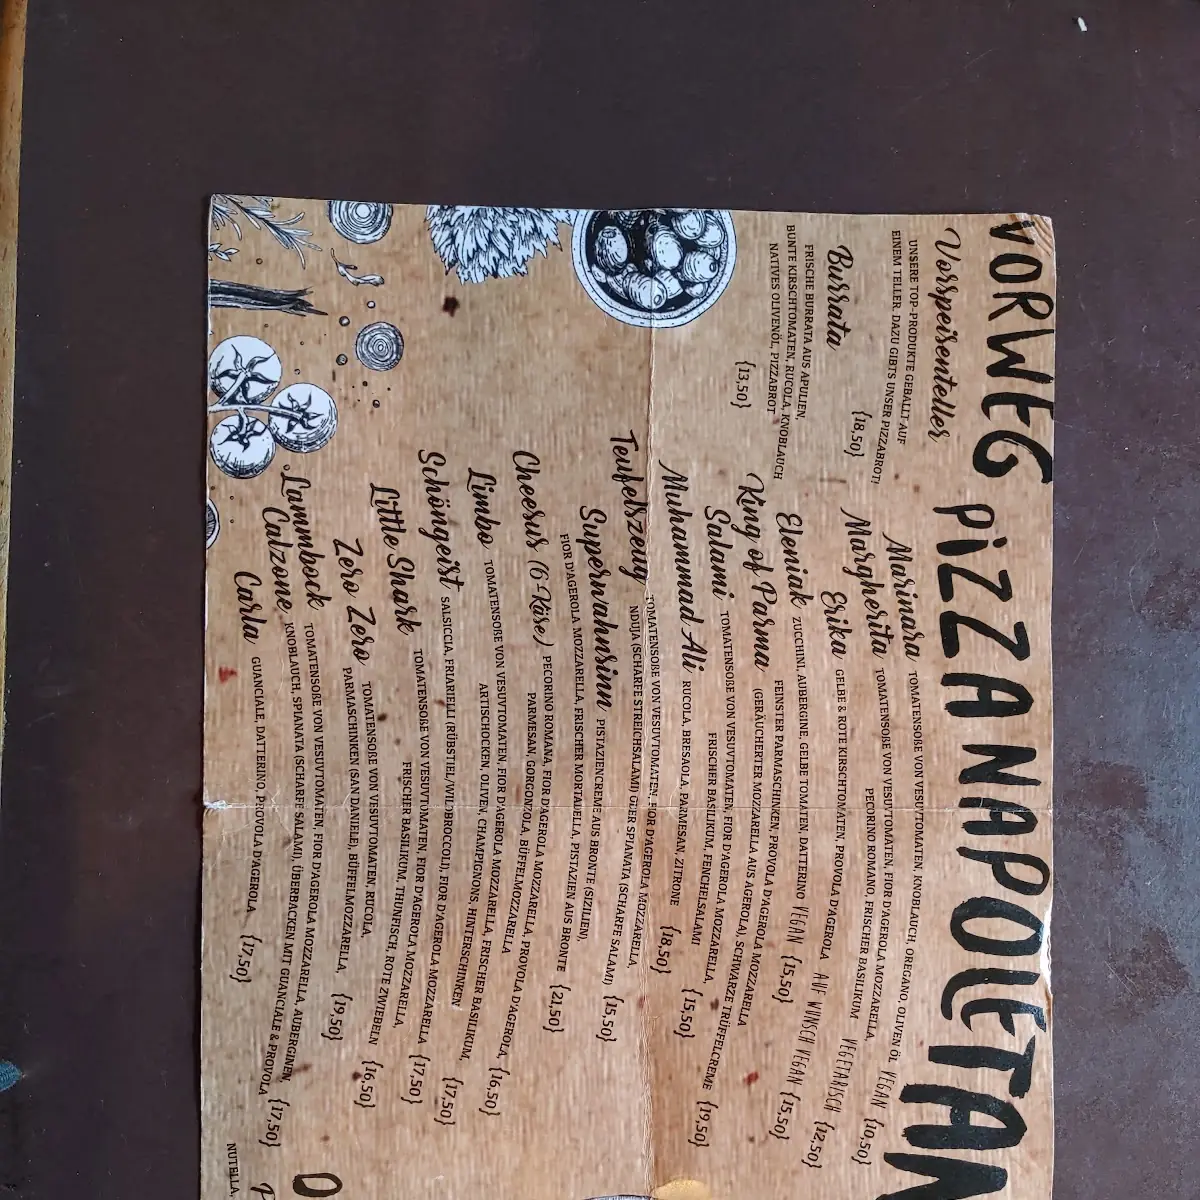 VORWEG
Vorspeisenteller
UNSERE TOP-PRODUKTE GEBALLT AUF
EINEM TELLER. DAZU GIBTS UNSER PIZZABROT!
{18,50}
Burrata
FRISCHE BURRATA AUS APULIEN,
BUNTE KIRSCHTOMATEN, RUCOLA, KNOBLAUCH
NATIVES OLIVENÖL, PIZZABROT
{13,50}
PIZZA NAPOLETAN
Marinara TOMATENSOßE VON VESUVTOMATEN, KNOBLAUCH, OREGANO, OLIVEN ÖL VEGAN {10,50}
Margherita TOMATENSOßE VON VESUVTOMATEN, FIOR D'AGEROLA MOZZARELLA,
PECORINO ROMANO, FRISCHER BASILIKUM VEGETARISCH {12,50}
Erika GELBE & ROTE KIRSCHTOMATEN, PROVOLA D'AGEROLA AUF WUNSCH VEGAN {15,50}
Eleniak ZUCCHINI, AUBERGINE, GELBE TOMATEN, DATTERINO VEGAN {15,50}
King of Parma FEINSTER PARMASCHINKEN, PROVOLA D'AGEROLA MOZZARELLA
(GERÄUCHERTER MOZZARELLA AUS AGEROLA), SCHWARZE TRÜFFELCREME {19,50}
Salami TOMATENSOßE VON VESUVTOMATEN, FIOR D'AGEROLA MOZZARELLA,
FRISCHER BASILIKUM, FENCHELSALAMI {15,50}
Muhammad Ali RUCOLA, BRESAOLA, PARMESAN, ZITRONE {18,50}
Teufelszeug TOMATENSOßE VON VESUVTOMATEN, FIOR D'AGEROLA MOZZARELLA,
NDUJA (SCHARFE STREICHSALAMI) ODER SPIANATA (SCHARFE SALAMI) {15,50}
Superwahnsinn PISTAZIENCREME AUS BRONTE (SIZILIEN),
FIOR D'AGEROLA MOZZARELLA, FRISCHER MORTADELLA, PISTAZIEN AUS BRONTE {21,50}
Cheesus (6-Käse) PECORINO ROMANA, FIOR D'AGEROLA MOZZARELLA, PROVOLA D'AGEROLA,
PARMESAN, GORGONZOLA, BÜFFELMOZZARELLA {16,50}
Limbo TOMATENSOßE VON VESUVTOMATEN, FIOR D'AGEROLA MOZZARELLA, FRISCHER BASILIKUM,
ARTISCHOCKEN, OLIVEN, CHAMPIGNONS, HINTERSCHINKEN {17,50}
Schöngeist SALSICCIA, FRIARIELLI (RÜBSTIEL/WILDBROCCOLI), FIOR D'AGEROLA MOZZARELLA {17,50}
Little Shark TOMATENSOßE VON VESUVTOMATEN, FIOR D'AGEROLA MOZZARELLA,
FRISCHER BASILIKUM, THUNFISCH, ROTE ZWIEBELN {16,50}
Zero Zero TOMATENSOßE VON VESUVTOMATEN, RUCOLA,
PARMASCHINKEN (SAN DANIELE), BÜFFELMOZZARELLA, {19,50}
Lammbock
Calzone TOMATENSOßE VON VESUVTOMATEN, FIOR D'AGEROLA MOZZARELLA, AUBERGINEN,
KNOBLAUCH, SPIANATA (SCHARFE SALAMI), ÜBERBACKEN MIT GUANCIALE & PROVOLA {17,50}
Carla GUANCIALE, DATTERINO, PROVOLA D'AGEROLA {17,50}
NUTELLA,